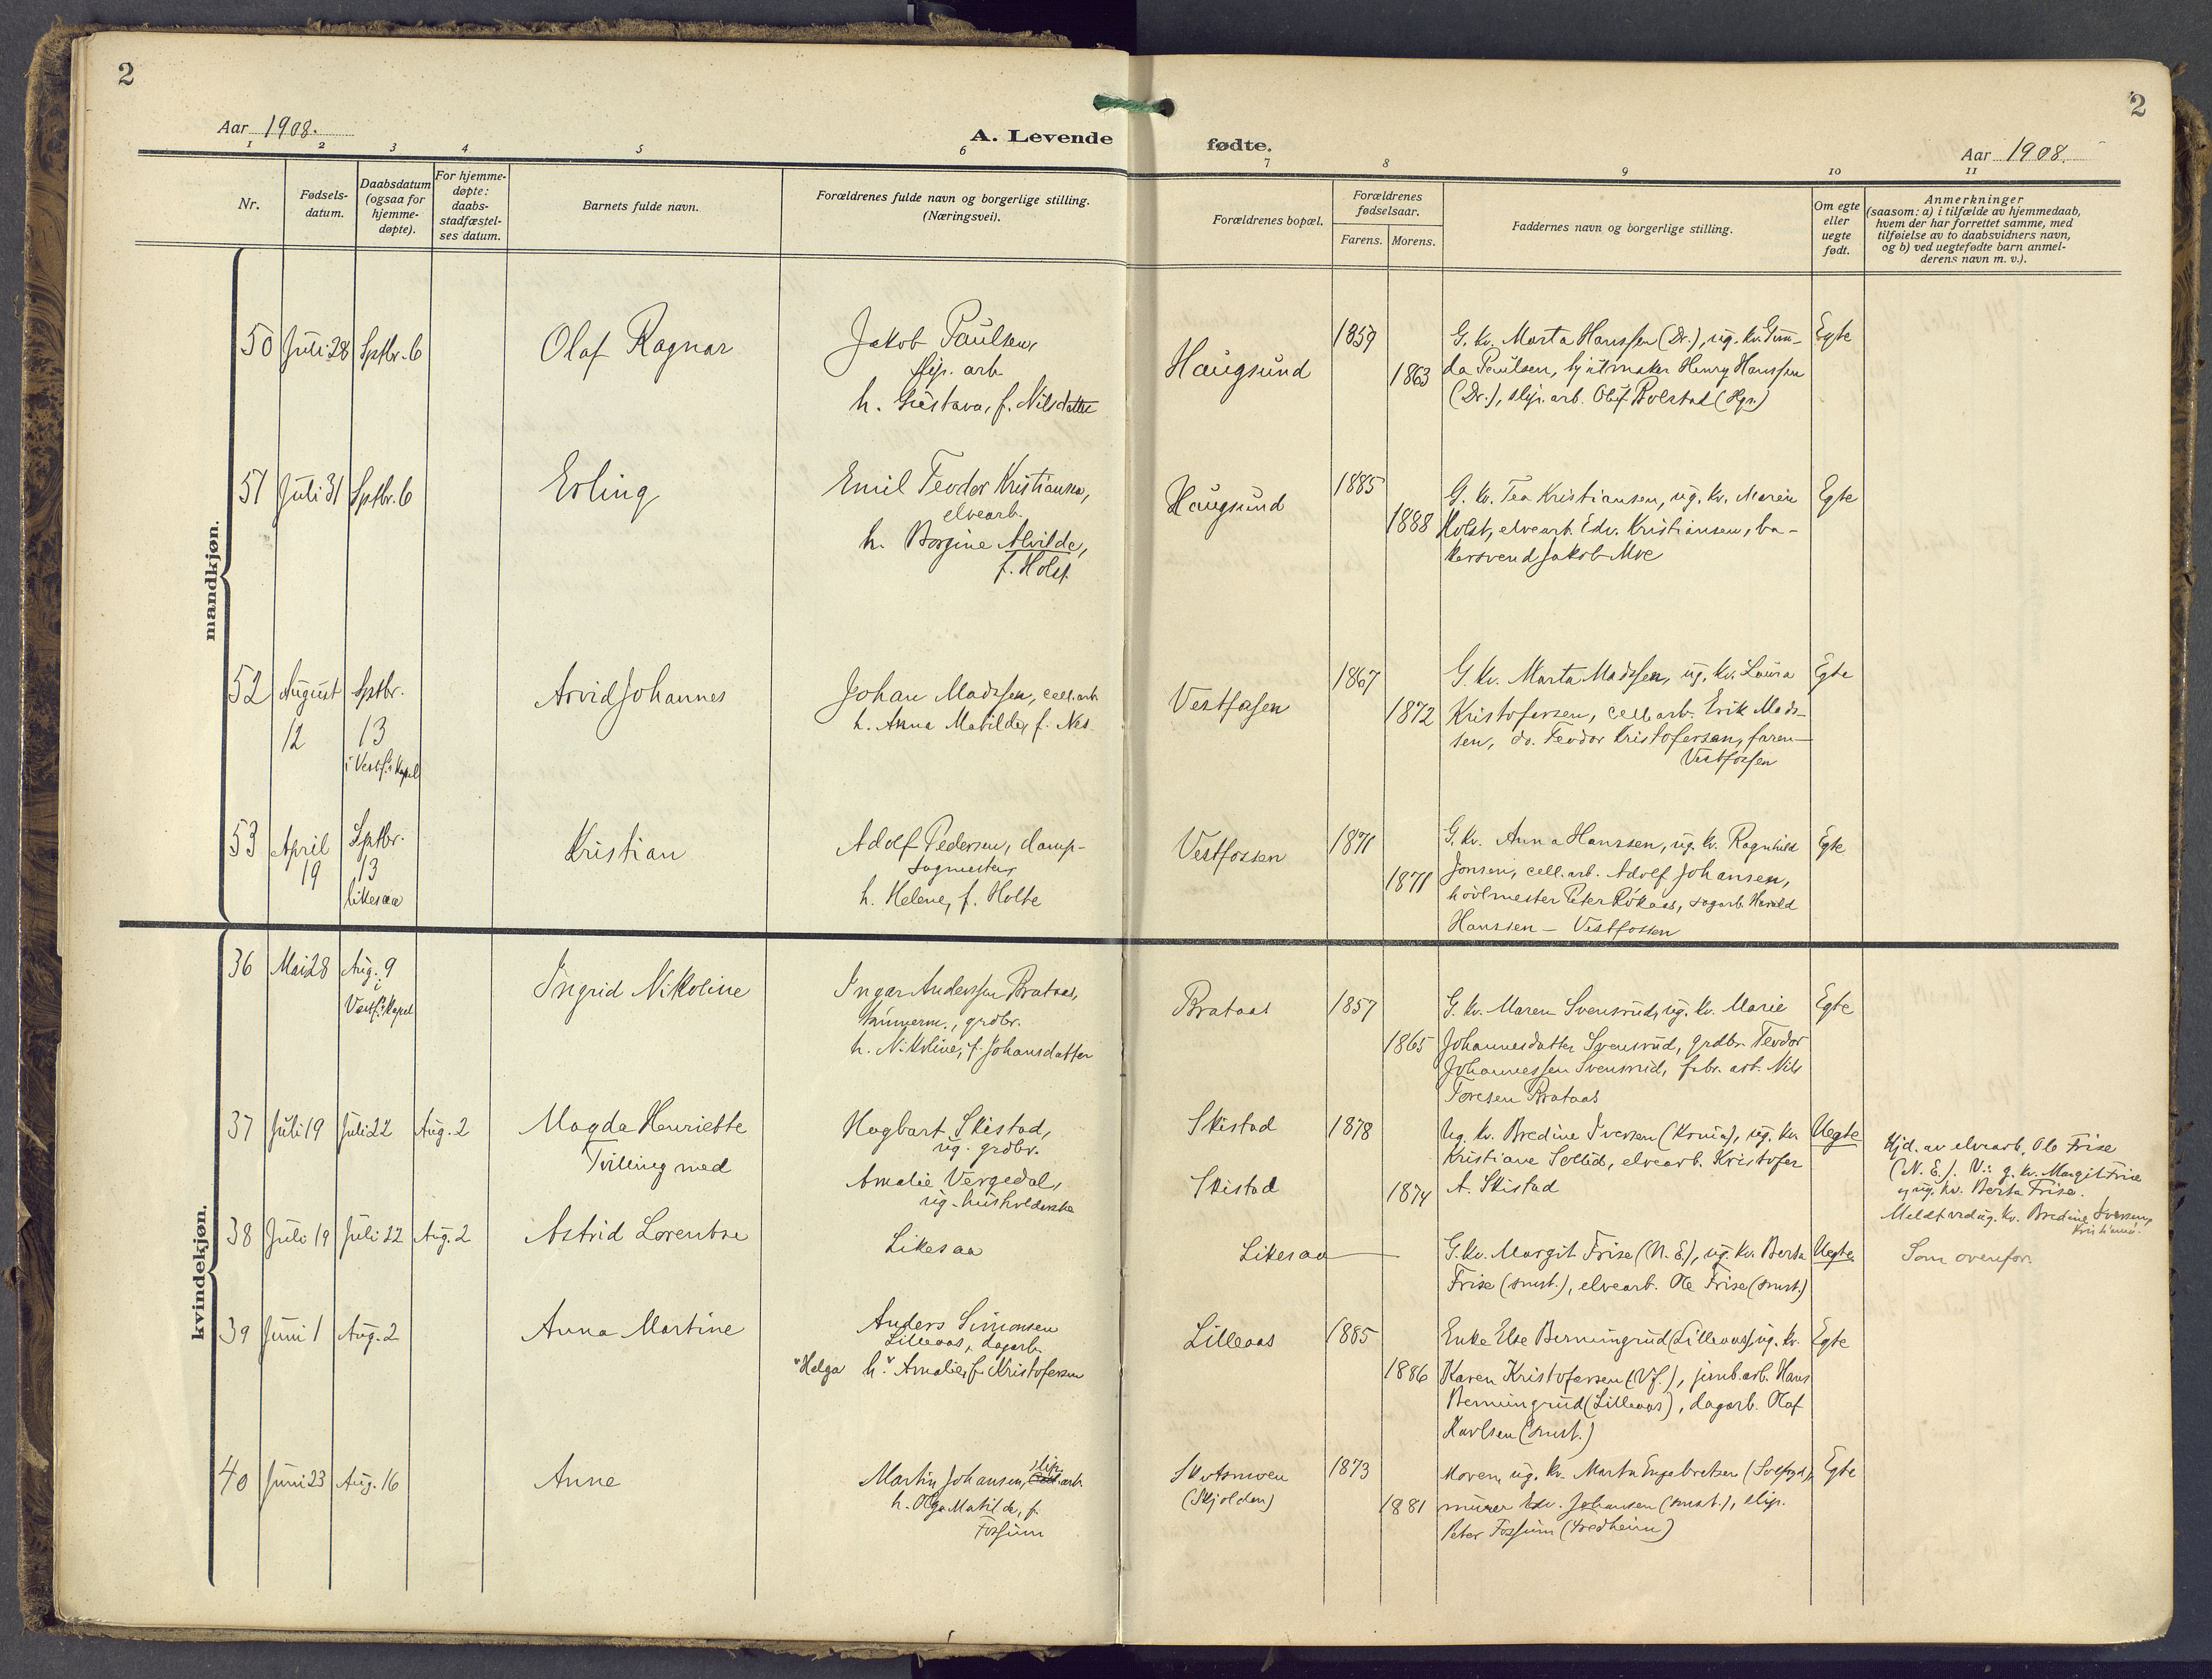 2
2
Aar 1908.
A. Levende
fødte.
Aar 1908.
1 2 3 4 5 6 7 8 9 10 11
Nr.
Fødsels-
datum.
Daabsdatum
(ogsaa for
hjemme-
døpte).
For hjemme-
døpte:
daabs-
stadfæstel-
ses datum.
Barnets fulde navn.
Forældrenes fulde navn og borgerlige stilling.
(Næringsvei).
Forældrenes bopæl.
Forældrenes
fødselsaar.
Farens. Morens.
Faddernes navn og borgerlige stilling.
Om egte
eller
uegte
født.
Anmerkninger
(saasom: a) i tilfælde av hjemmedaab,
hvem der har forrettet samme, med
tilføielse av to daabsvidners navn,
og b) ved uegtefødte barn anmel-
derens navn m. v.).
mandkjøn.
50 Juli 28 Sptbr. 6
Olaf Ragnar
Jakob Paulsen,
slip. arb.
h. Gustava, f. Nilsdatter
Haugsund
1859
1863
G. kv. Marta Hanssen (Dr.), ug. kv. Gun-
da Paulsen, hjulmaker Henry Hanssen
(Dr.), slip. arb. Olaf Bolstad (Hgs.)
Egte
51 Juli 31 Sptbr. 6
Erling
Emil Teodor Kristiansen,
elvearb.
h. Borgine Alvilde,
f. Holst
Haugsund
1885
1888
G. kv. Tea Kristiansen, ug. kv. Maren
Holst, elvearb. Edv. Kristiansen, ba-
kersvend Jakob Moe
Egte
52 August
12
Sptbr.
13
i Vestf.s kapel
Arvid Johannes
Johan Madssen, cell. arb.
h. Anna Matilde, f. Nes.
Vestfossen
1867
1872
G. kv. Marta Madssen, ug. kv. Laura
Kristofersen, cell. arb. Erik Mads-
sen, do. Teodor Kristofersen, faren —
Vestfossen
Egte
53 April
19
Sptbr.
13
likesaa
Kristian
Adolf Pedersen, damp-
sagmester,
h. Helene, f. Holte
Vestfossen
1871
1871
G. kv. Anna Hanssen, ug. kv. Ragnhild
Jonsen, cell. arb. Adolf Johansen,
hövlmester Peter Rökaas, sagarb. Harald
Hanssen — Vestfossen
Egte
kvindekjøn.
36 Mai 28 Aug. 9
i
Vestf.s kapel
Ingrid Nikoline
Ingar Anderssen Brataas,
tømmerm., grdbr.
h. Nikoline, f. Johansdatter
Brataas
1857
1865
G. kv. Maren Svensrud, ug. kv. Marie
Johannesdatter Svensrud, grdbr. Teodor
Johannessen Svensrud, fabr. arb. Nils
Toresen Brataas
Egte
37 Juli 19 Juli 22 Aug. 2
Magda Henriette
Tvilling med
Hagbart Skistad,
ug. grdbr.
Amalie Vergedal,
ug. husholderske
Skistad
Skistad
1878
1874
Ug. kv. Bredine Iversen (Kr.nia), ug. kv.
Kristiane Sollid, elvearb. Kristofer
A. Skistad
Uegte
Hjd. av elvearb. Ole Frise
(N. E.). V.: g. kv. Margit Frise
og ug. kv. Berta Frise.
Meldt ved ug. kv. Bredine Iversen,
Kristiania.
38 Juli 19 Juli 22 Aug. 2
Astrid Lorentse
Likesaa
Likesaa
G. kv. Margit Frise (N. E.), ug. kv. Berta
Frise (smst.), elvearb. Ole Frise (smst.)
Uegte
Som ovenfor.
39 Juni 1 Aug. 2
Anna Martine
Anders Simonsen
Lilleaas, dagarb.
"Helga h. " Amalie, f. Kristofersen
Lilleaas
1885
1886
Enke Else Berningrud (Lilleaas), ug. kv.
Karen Kristofersen (Vf.), jernb. arb. Hans
Berningrud (Lilleaas), dagarb. Olaf
Karlsen (smst.)
Egte
40 Juni 23 Aug. 16
Anne
Martin Johansen, slip. arb.
h. Olga Matilde, f.
Fossum
Skotsmoen
(Skjolden)
1873
1881
Moren, ug. kv. Marta Engebretsen
murer Edv. Johansen (smst.), slip.
Peter Fossum (Fredheim)
Egte